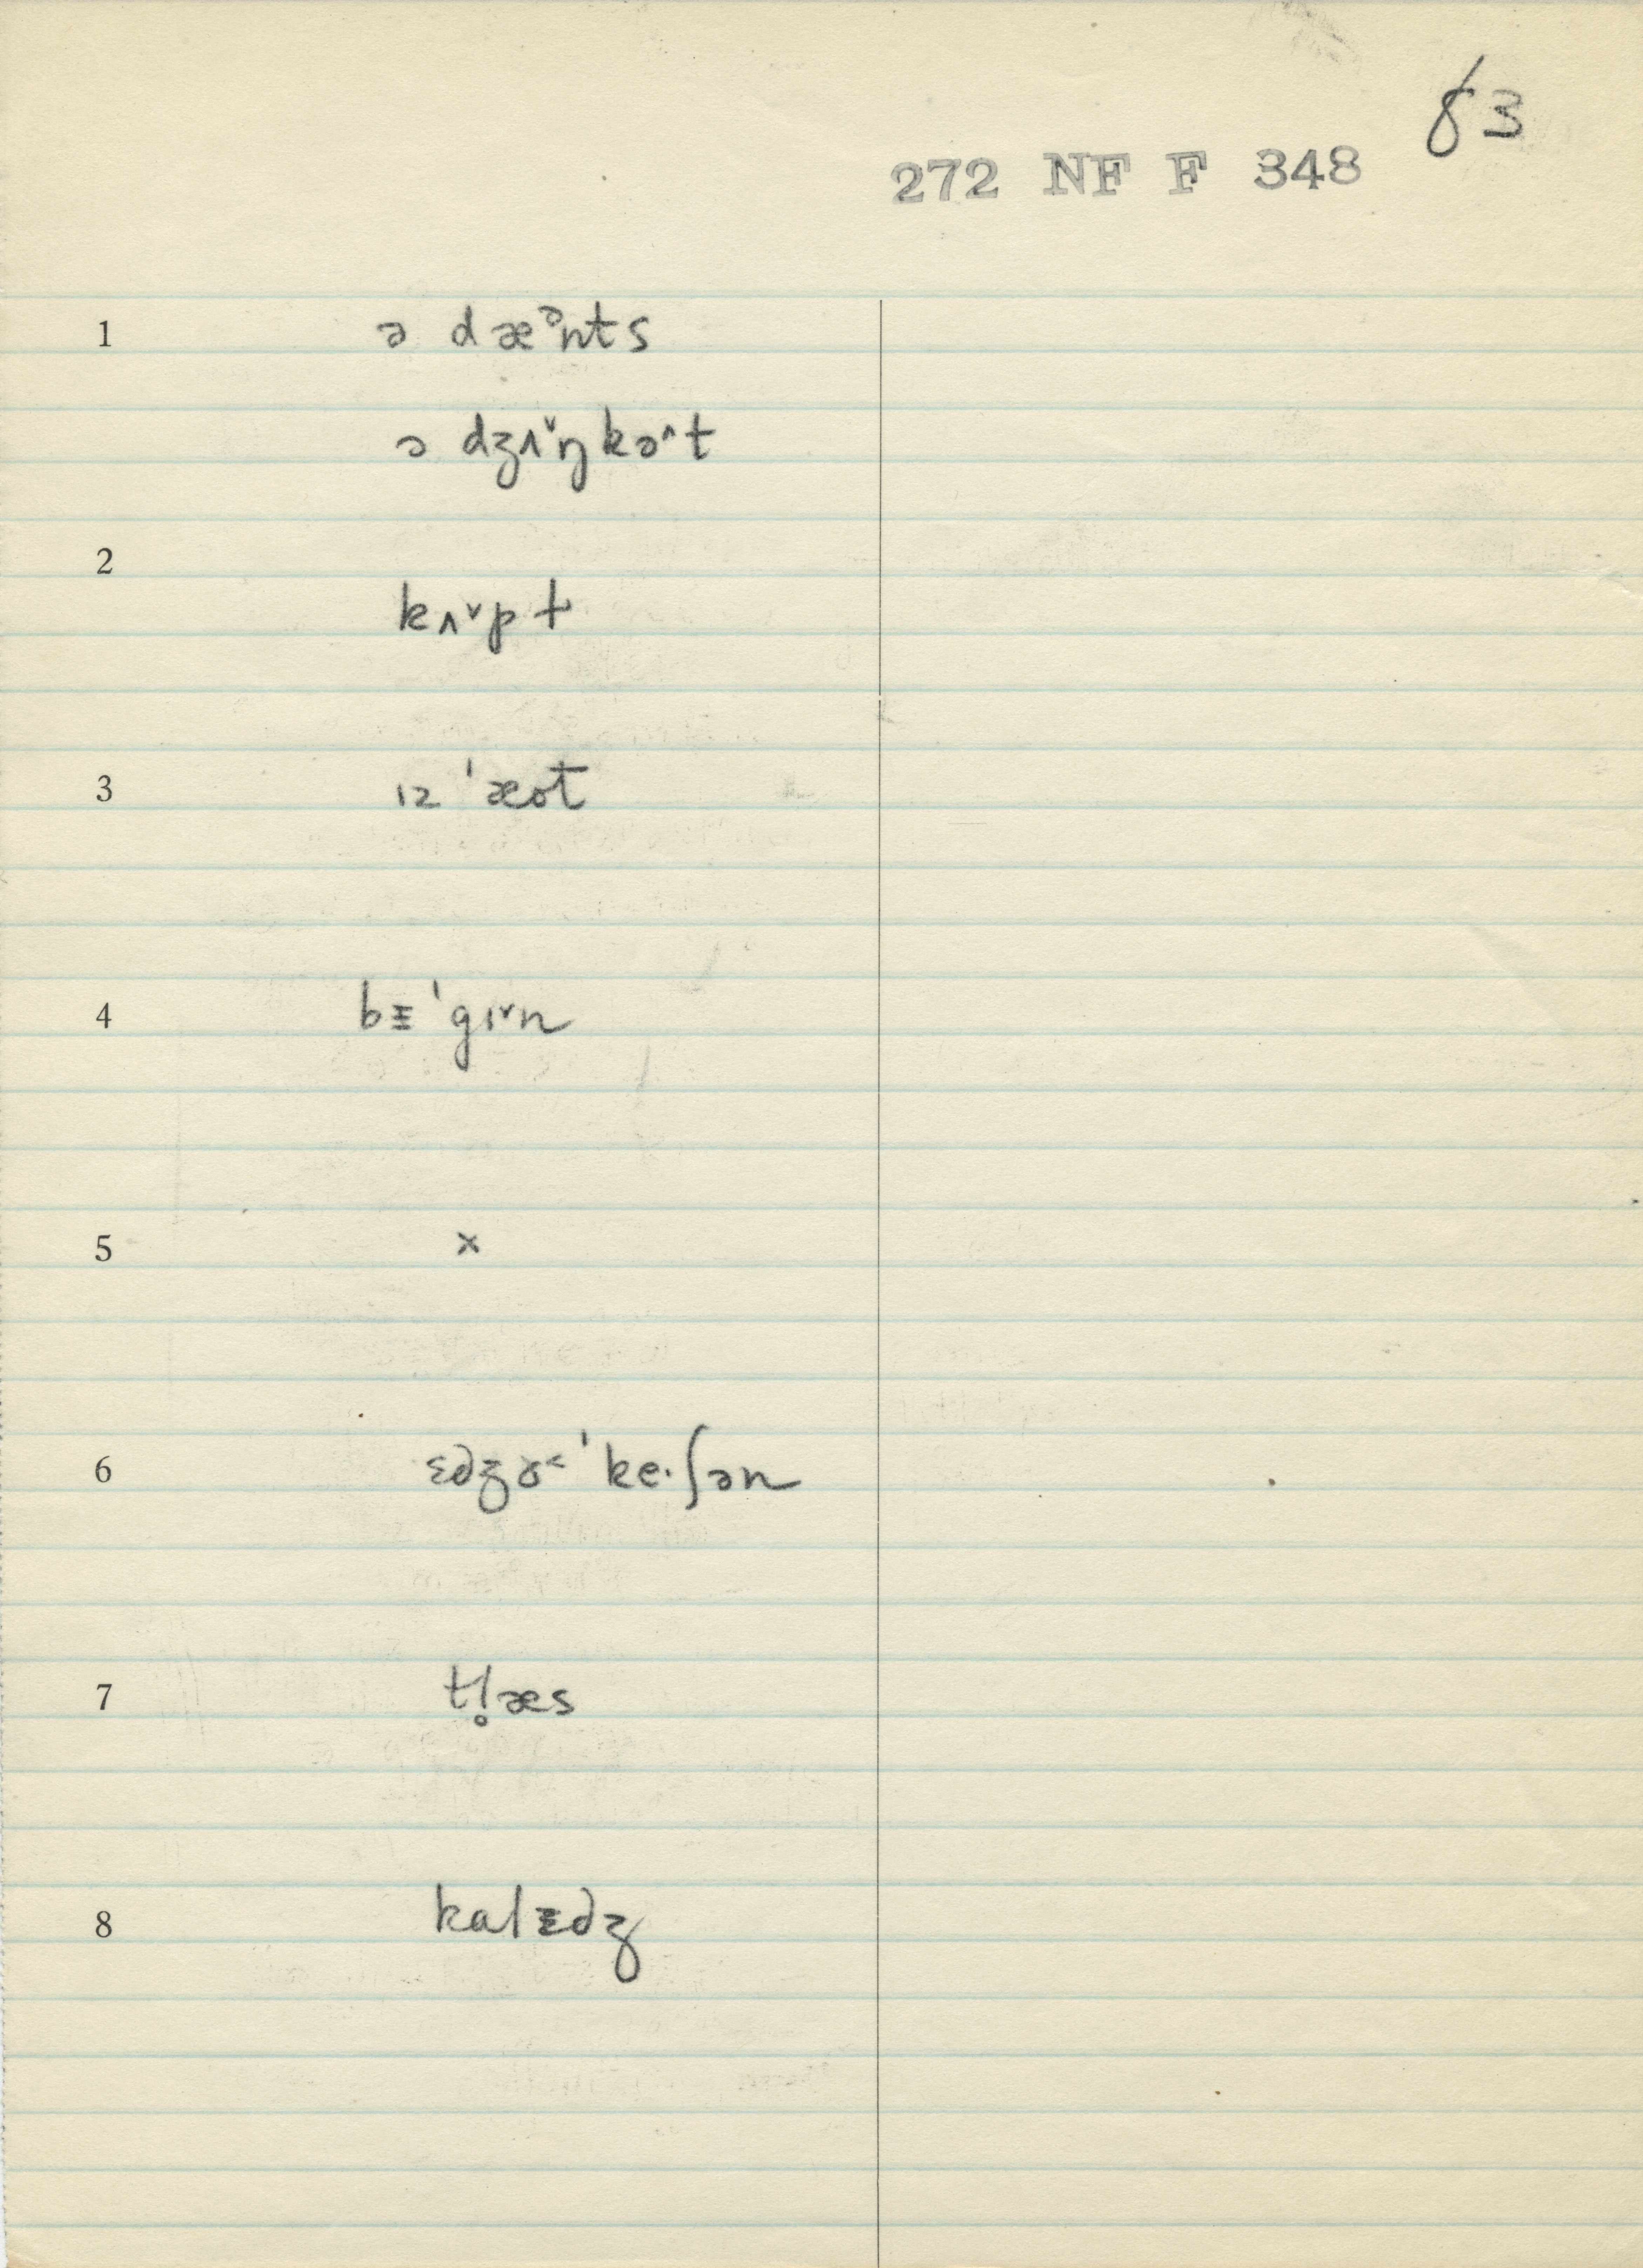 83
272 NF F 348
1 ə dæᵊnts
ə dʒʌ˅ŋkə˄t
2
kʌ˅pt
3 ɪz 'æot
4 bᵻ 'gɪ˅n
5 x
6 ɛdʒɤ˂ 'ke·ʃən
7 tl̥æs
8 kalᵻdʒ